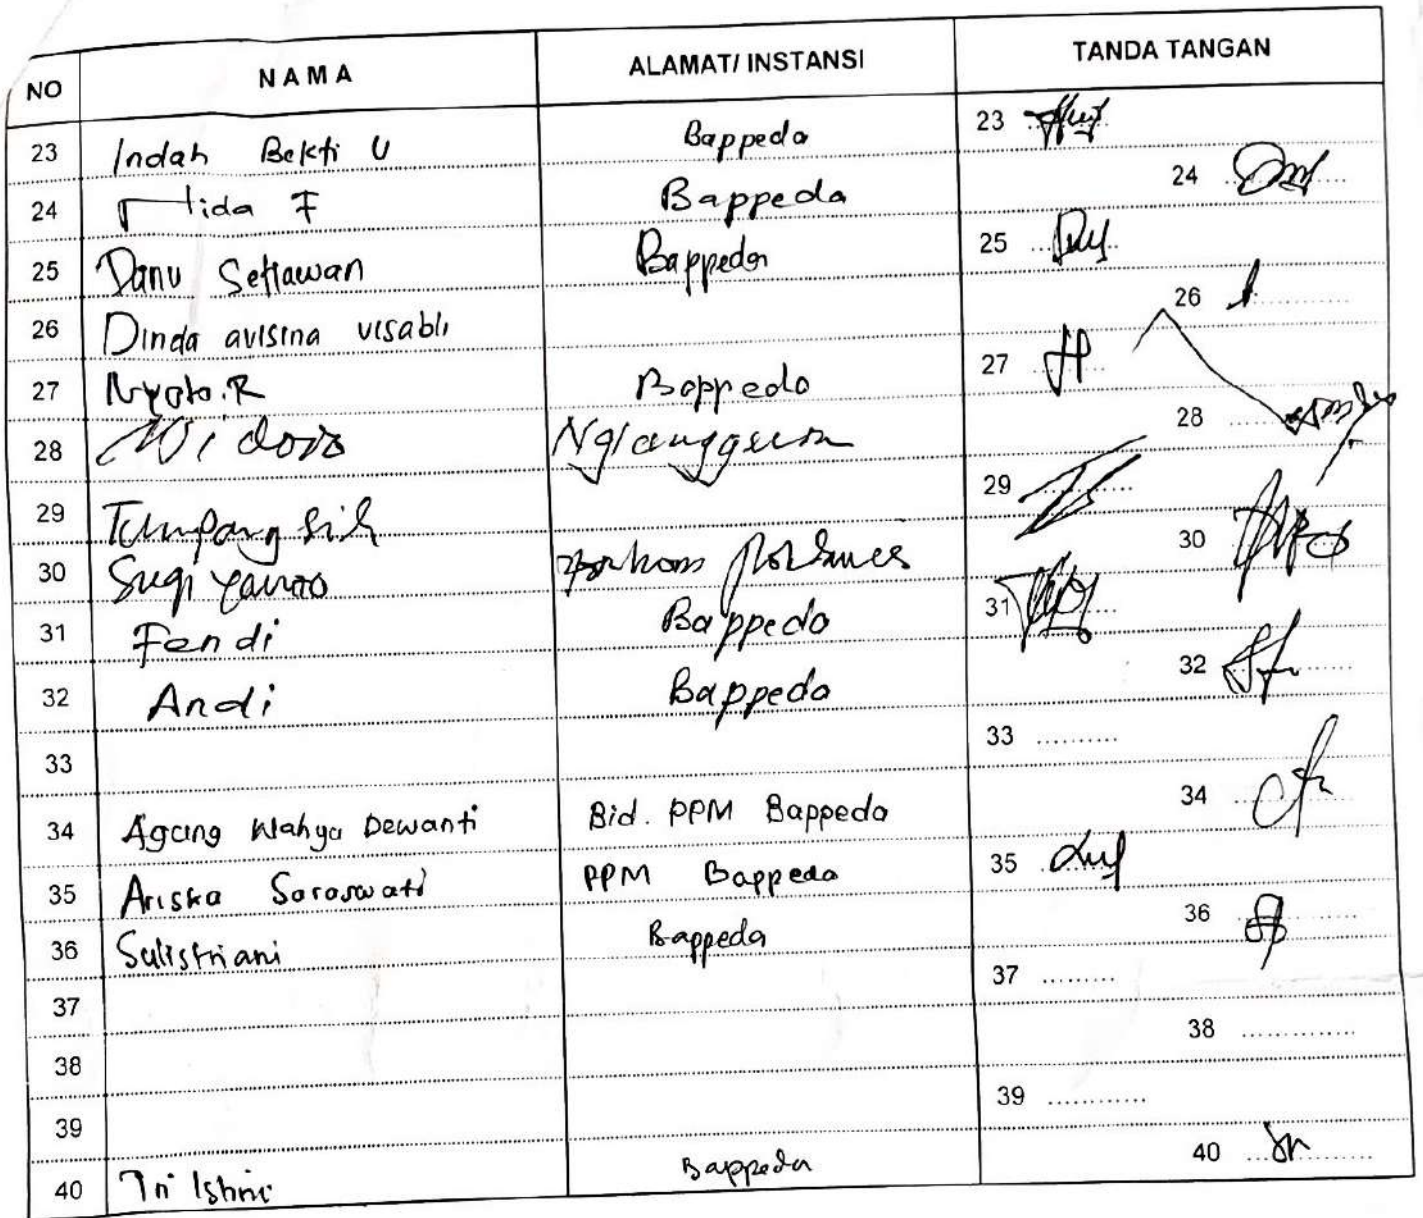 NO NAMA ALAMAT/ INSTANSI TANDA TANGAN
23 Indah Bekti U Bappeda 23
24 Hida F Bappeda 24
25 Danu Setiawan Bappeda 25
26 Dinda avisina visabli 26
27 Nyoto.R Bappeda 27
28 Widodo Nglanggeran 28
29 Tumpang sih 29
30 Sugiyanto 30
31 Fendi Bappeda 31
32 Andi Bappeda 32
33 33
34 Agung Wahyu Dewanti Bid. PPM Bappeda 34
35 Ariska Saraswati PPM Bappeda 35
36 Sulistriani Bappeda 36
37 37
38 38
39 39
40 Tri Bappeda 40